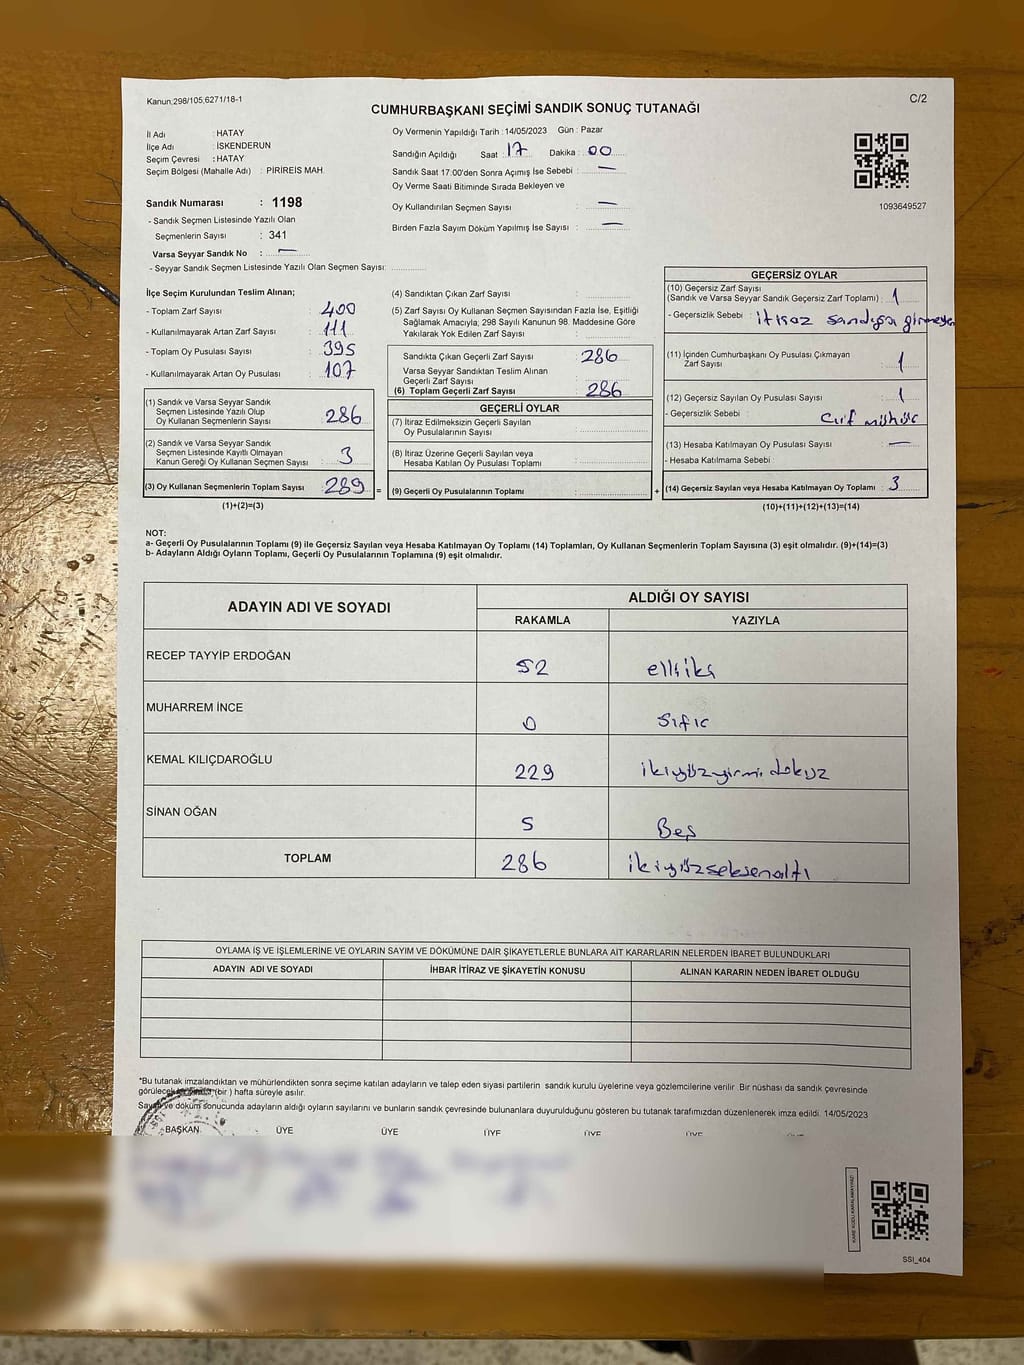 Kanun,298/105,6271/18-1
C/2
CUMHURBAŞKANI SEÇİMİ SANDIK SONUÇ TUTANAĞI
İl Adı : HATAY
İlçe Adı : İSKENDERUN
Seçim Çevresi : HATAY
Seçim Bölgesi (Mahalle Adı) : PİRİREİS MAH.
Sandık Numarası : 1198
- Sandık Seçmen Listesinde Yazılı Olan
Seçmenlerin Sayısı : 341
Varsa Seyyar Sandık No : —
- Seyyar Sandık Seçmen Listesinde Yazılı Olan Seçmen Sayısı:
Oy Vermenin Yapıldığı Tarih : 14/05/2023 Gün : Pazar
Sandığın Açıldığı Saat : 17 Dakika : 00
Sandık Saat 17:00'den Sonra Açımış İse Sebebi : —
Oy Verme Saati Bitiminde Sırada Bekleyen ve
Oy Kullandırılan Seçmen Sayısı : —
Birden Fazla Sayım Döküm Yapılmış İse Sayısı : —
1093649527
İlçe Seçim Kurulundan Teslim Alınan;
- Toplam Zarf Sayısı : 400
- Kullanılmayarak Artan Zarf Sayısı : 111
- Toplam Oy Pusulası Sayısı : 395
- Kullanılmayarak Artan Oy Pusulası : 107
(1) Sandık ve Varsa Seyyar Sandık
Seçmen Listesinde Yazılı Olup
Oy Kullanan Seçmenlerin Sayısı : 286
(2) Sandık ve Varsa Seyyar Sandık
Seçmen Listesinde Kayıtlı Olmayan
Kanun Gereği Oy Kullanan Seçmen Sayısı : 3
(3) Oy Kullanan Seçmenlerin Toplam Sayısı : 289 =
(1)+(2)=(3)
(4) Sandıktan Çıkan Zarf Sayısı :
(5) Zarf Sayısı Oy Kullanan Seçmen Sayısından Fazla İse, Eşitliği
Sağlamak Amacıyla; 298 Sayılı Kanunun 98. Maddesine Göre
Yakılarak Yok Edilen Zarf Sayısı :
Sandıkta Çıkan Geçerli Zarf Sayısı : 286
Varsa Seyyar Sandıktan Teslim Alınan
Geçerli Zarf Sayısı :
(6) Toplam Geçerli Zarf Sayısı : 286
GEÇERLİ OYLAR
(7) İtiraz Edilmeksizin Geçerli Sayılan
Oy Pusulalarının Sayısı :
(8) İtiraz Üzerine Geçerli Sayılan veya
Hesaba Katılan Oy Pusulası Toplamı :
(9) Geçerli Oy Pusulalarının Toplamı : +
GEÇERSİZ OYLAR
(10) Geçersiz Zarf Sayısı
(Sandık ve Varsa Seyyar Sandık Geçersiz Zarf Toplamı) : 1
- Geçersizlik Sebebi : itiraz sandığa girmeyen
(11) İçinden Cumhurbaşkanı Oy Pusulası Çıkmayan
Zarf Sayısı : 1
(12) Geçersiz Sayılan Oy Pusulası Sayısı : 1
- Geçersizlik Sebebi : Çift mühür
(13) Hesaba Katılmayan Oy Pusulası Sayısı : —
- Hesaba Katılmama Sebebi :
(14) Geçersiz Sayılan veya Hesaba Katılmayan Oy Toplamı : 3
(10)+(11)+(12)+(13)=(14)
NOT:
a- Geçerli Oy Pusulalarının Toplamı (9) ile Geçersiz Sayılan veya Hesaba Katılmayan Oy Toplamı (14) Toplamları, Oy Kullanan Seçmenlerin Toplam Sayısına (3) eşit olmalıdır. (9)+(14)=(3)
b- Adayların Aldığı Oyların Toplamı, Geçerli Oy Pusulalarının Toplamına (9) eşit olmalıdır.
ADAYIN ADI VE SOYADI
ALDIĞI OY SAYISI
RAKAMLA YAZIYLA
RECEP TAYYİP ERDOĞAN 52 elliiki
MUHARREM İNCE 0 Sıfır
KEMAL KILIÇDAROĞLU 229 ikiyüzyirmi dokuz
SİNAN OĞAN 5 Beş
TOPLAM 286 ikiyüzseksenaltı
OYLAMA İŞ VE İŞLEMLERİNE VE OYLARIN SAYIM VE DÖKÜMÜNE DAİR ŞİKAYETLERLE BUNLARA AİT KARARLARIN NELERDEN İBARET BULUNDUKLARI
ADAYIN ADI VE SOYADI İHBAR İTİRAZ VE ŞİKAYETİN KONUSU ALINAN KARARIN NEDEN İBARET OLDUĞU
*Bu tutanak imzalandıktan ve mühürlendikten sonra seçime katılan adayların ve talep eden siyasi partilerin sandık kurulu üyelerine veya gözlemcilerine verilir. Bir nüshası da sandık çevresinde
görülecek (bir) hafta süreyle asılır.
Sayım ve döküm sonucunda adayların aldığı oyların sayılarını ve bunların sandık çevresinde bulunanlara duyurulduğunu gösteren bu tutanak tarafımızdan düzenlenerek imza edildi. 14/05/2023
BAŞKAN ÜYE ÜYE ÜYE ÜYE ÜYE ÜYE
KARE KODU KARALAMAYINIZ!
SSI_404